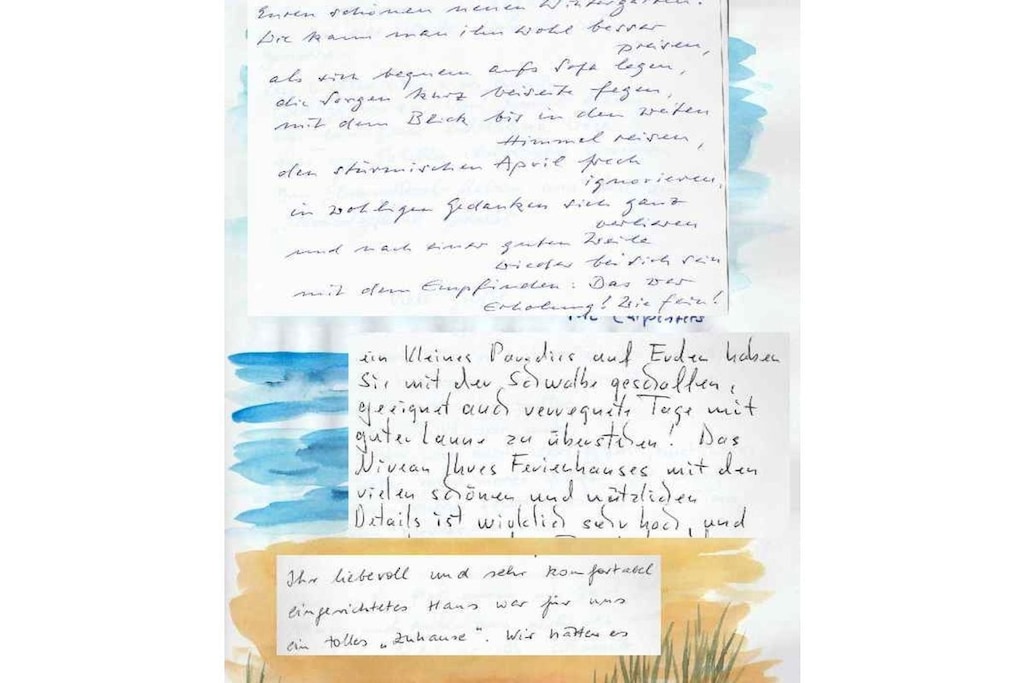 Euren schönen neuen Wintergarten.
Wie kann man ihn wohl besser
preisen,
als sich bequem aufs Sofa legen,
die Sorgen kurz beiseite fegen,
mit dem Blick bis in den weiten
Himmel reisen,
den stürmischen April frech
ignorieren,
in wohligen Gedanken sich ganz
verlieren
und nach einer guten Weile
wieder bei sich sein
mit dem Empfinden: Das war
Erholung! Wie fein!
ein kleines Paradies auf Erden haben
Sie mit der Schwalbe geschaffen,
geeignet auch verregnete Tage mit
guter Laune zu überstehen! Das
Niveau Ihres Ferienhauses mit den
vielen schönen und nützlichen
Details ist wirklich sehr hoch, und
Ihr liebevoll und sehr komfortabel
eingerichtetes Haus war für uns
ein tolles „Zuhause". Wir hätten es